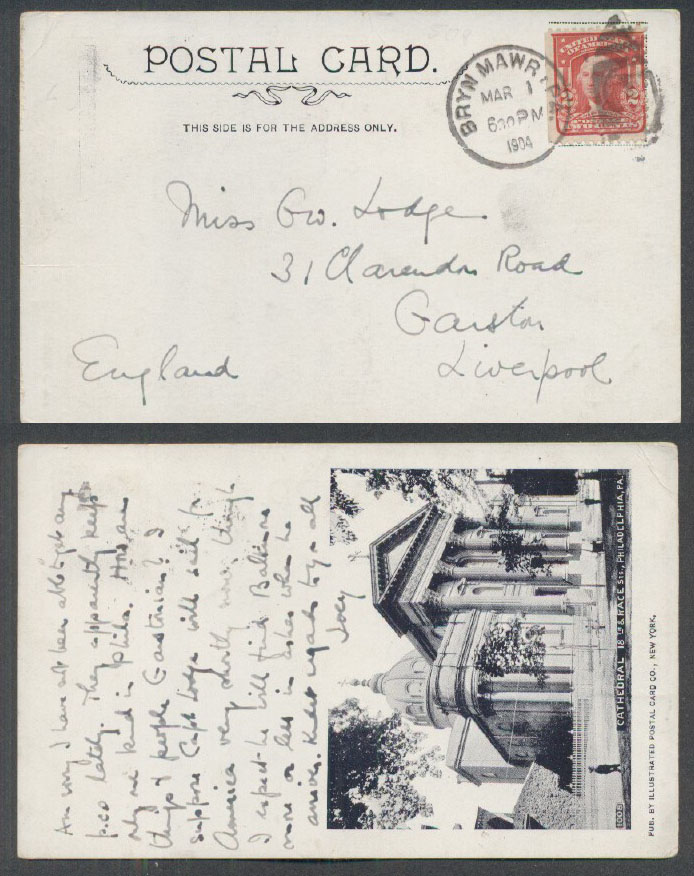 POSTAL CARD.
THIS SIDE IS FOR THE ADDRESS ONLY.
BRYN MAWR, PA.
MAR 1
6 00 PM
1904
UNITED STATES
OF AMERICA
2 2
TWO CENTS
Miss Gw. Lodge
31 Clarendon Road
Garston
Liverpool
England
Am sorry I have not been able to get any
p.cs lately. They apparently keep
only one kind in Phila. How are
things & people Garstonian? I
suppose Capt Lodge will sail for
America very shortly now, though
I expect he will find Baltimore
more or less in ashes when he
arrives. Kindest regards to you all
Joey
CATHEDRAL 18 th & RACE STS., PHILADELPHIA, PA.
PUB. BY ILLUSTRATED POSTAL CARD CO., NEW YORK.